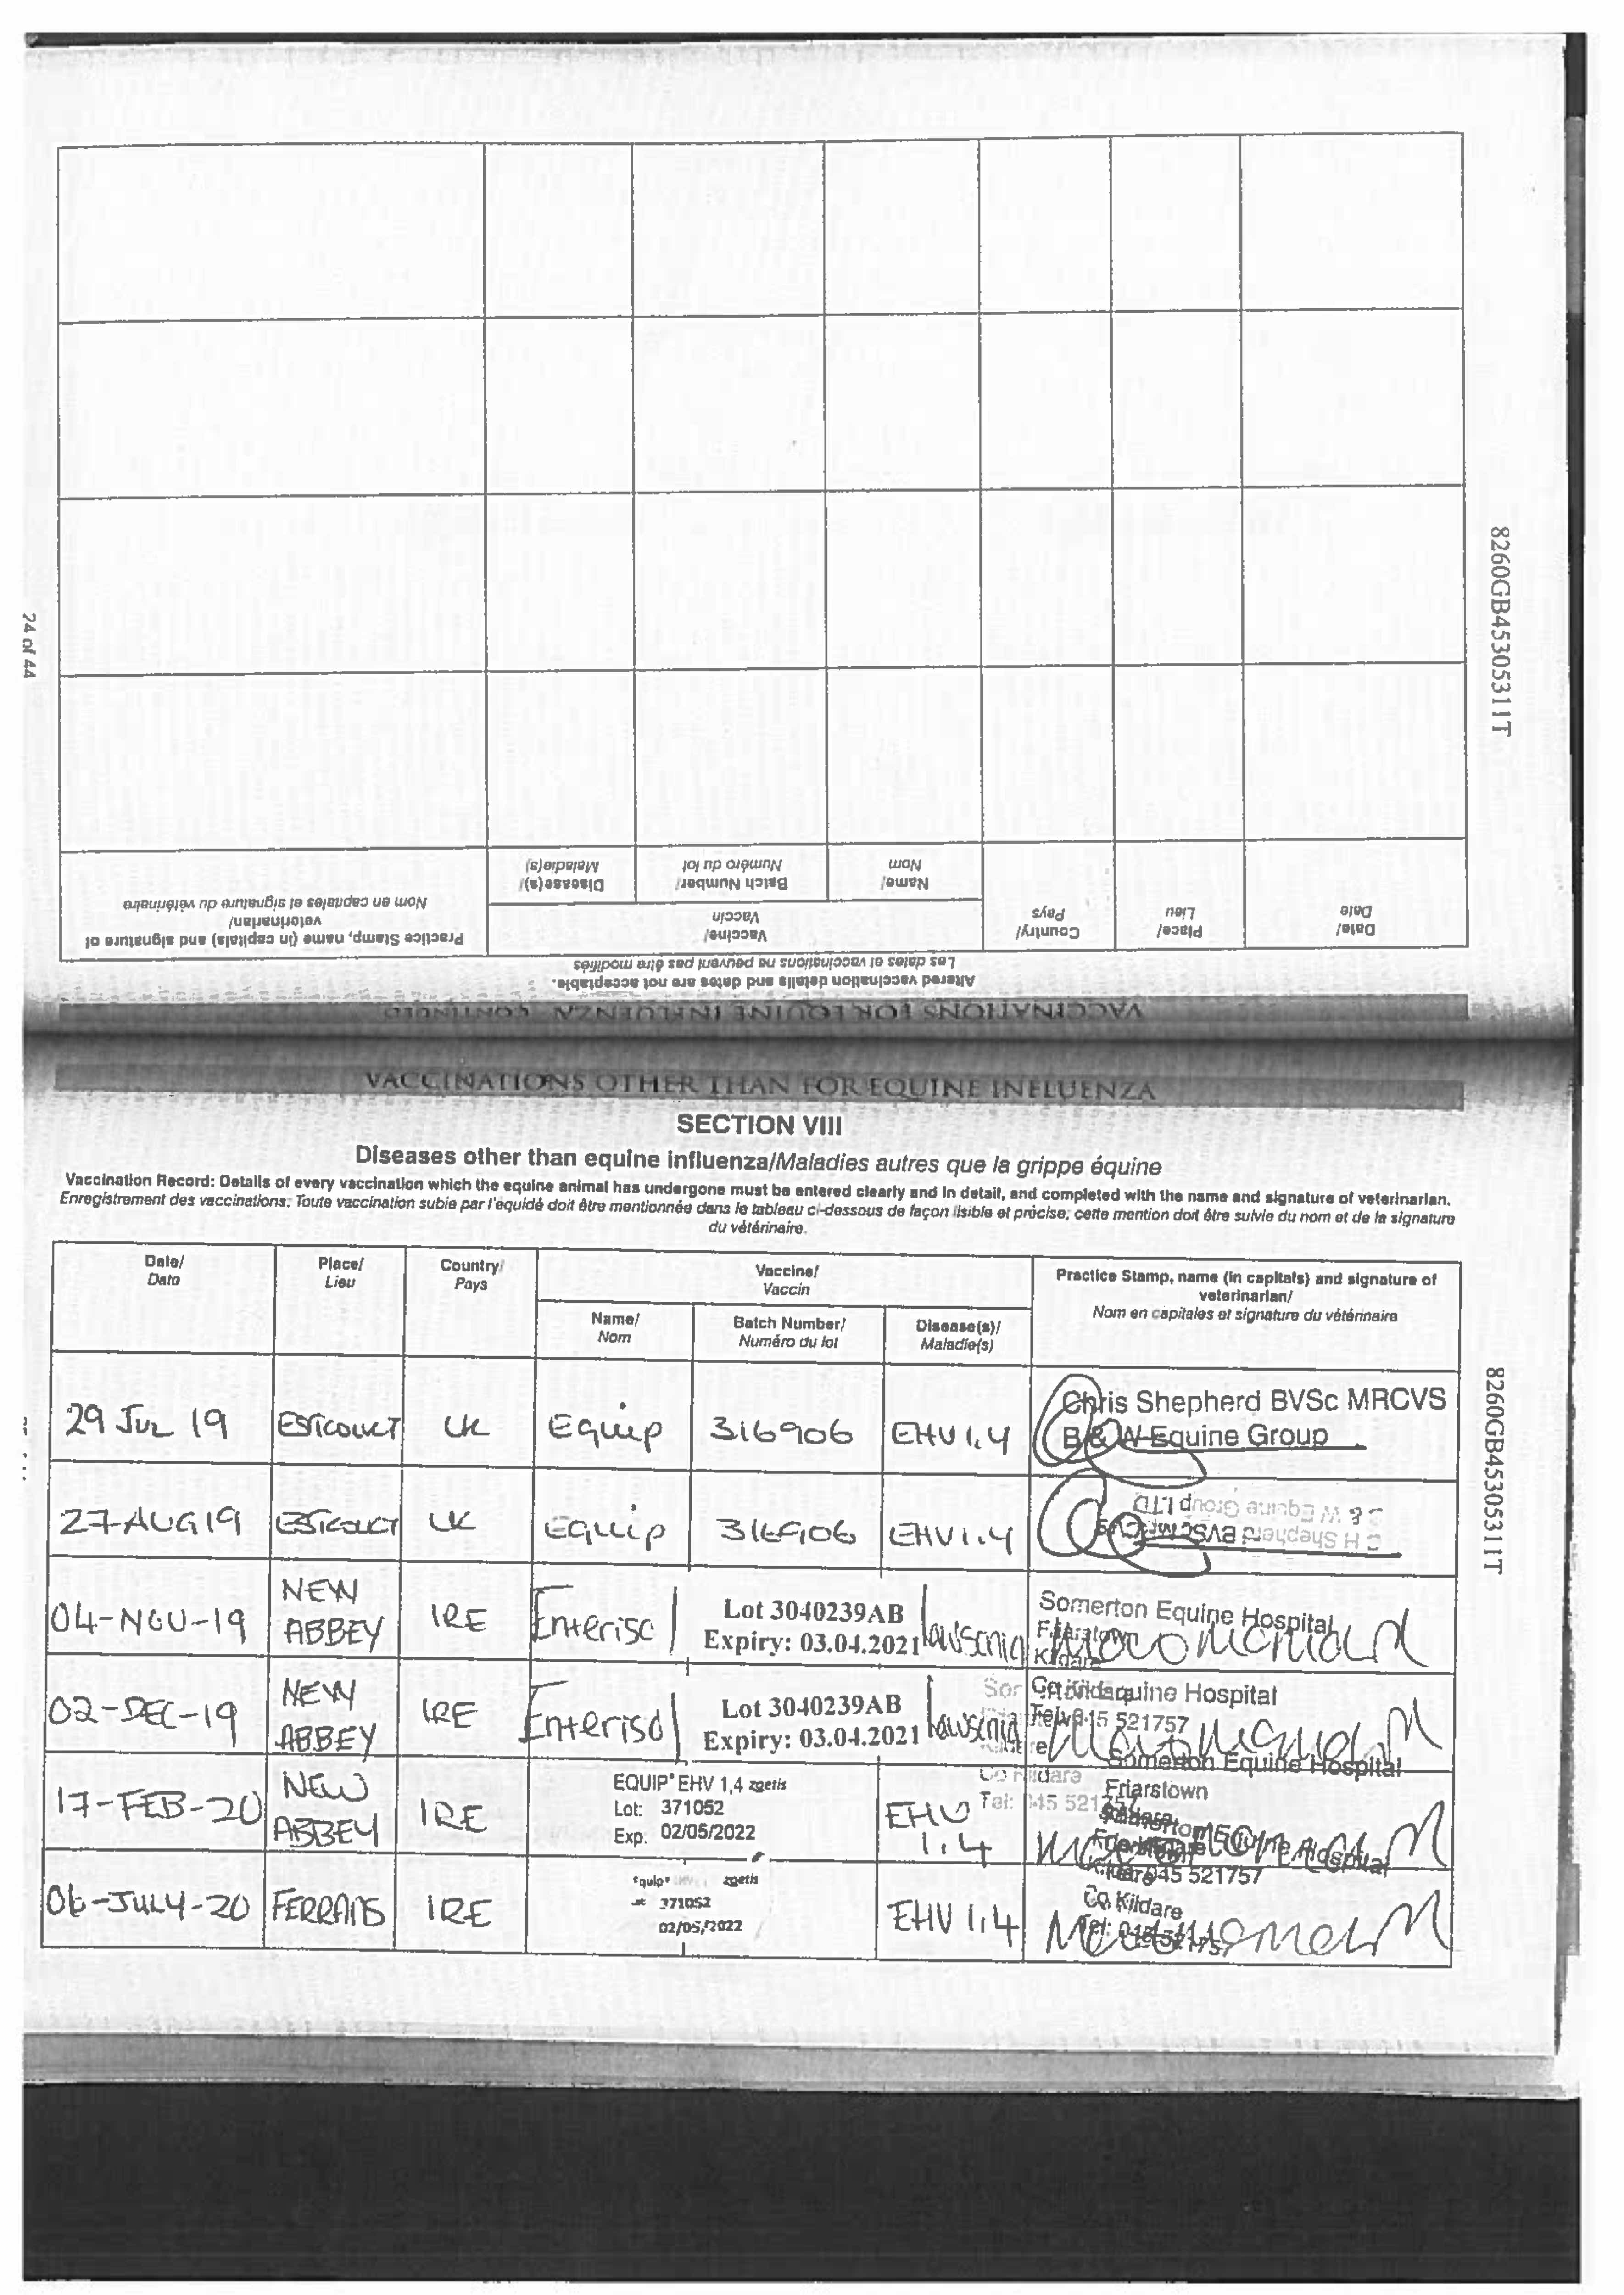 24 of 44
8260GB45305311T
VACCINATIONS FOR EQUINE INFLUENZA CONTINUED
Altered vaccination details and dates are not acceptable.
Les dates et vaccinations ne peuvent pas être modifiés
Date/
Date
Place/
Lieu
Country/
Pays
Vaccine/
Vaccin
Name/
Nom
Batch Number/
Numéro du lot
Disease(s)/
Maladie(s)
Practice Stamp, name (in capitals) and signature of
veterinarian/
Nom en capitales et signature du vétérinaire
VACCINATIONS OTHER THAN FOR EQUINE INFLUENZA
SECTION VIII
Diseases other than equine influenza/Maladies autres que la grippe équine
Vaccination Record: Details of every vaccination which the equine animal has undergone must be entered clearly and in detail, and completed with the name and signature of veterinarian.
Enregistrement des vaccinations: Toute vaccination subie par l'équidé doit être mentionnée dans le tableau ci-dessous de façon lisible et précise; cette mention doit être suivie du nom et de la signature
du vétérinaire.
Date/
Date
Place/
Lieu
Country/
Pays
Vaccine/
Vaccin
Name/
Nom
Batch Number/
Numéro du lot
Disease(s)/
Maladie(s)
Practice Stamp, name (in capitals) and signature of
veterinarian/
Nom en capitales et signature du vétérinaire
29 JUL 19 ESTCOURT UK Equip 316906 EHV 1,4
Chris Shepherd BVSc MRCVS
B & W Equine Group
27 AUG 19 ESTCOURT UK Equip 316906 EHV 1,4
C H Shepherd BVSc MRCVS
B & W Equine Group LTD
04-NOV-19 NEW ABBEY IRE Enterisol
Lot 3040239AB
Expiry: 03.04.2021
lawsonia
Somerton Equine Hospital
Friarstown
Kildare
02-DEC-19 NEW ABBEY IRE Enterisol
Lot 3040239AB
Expiry: 03.04.2021
lawsonia
Co Kildare
Equine Hospital
Tel: 045 521757
17-FEB-20 NEW ABBEY IRE
EQUIP® EHV 1,4 zoetis
Lot: 371052
Exp. 02/05/2022
EHV 1.4
Somerton Equine Hospital
Friarstown
Kildare
Co Kildare
Tel: 045 521757
06-JULY-20 FERRANS IRE
Equip® zoetis
371052
02/05/2022
EHV 1,4
Somerton Equine Hospital
Friarstown
Kildare
Co Kildare
Tel: 045 521757
8260GB45305311T